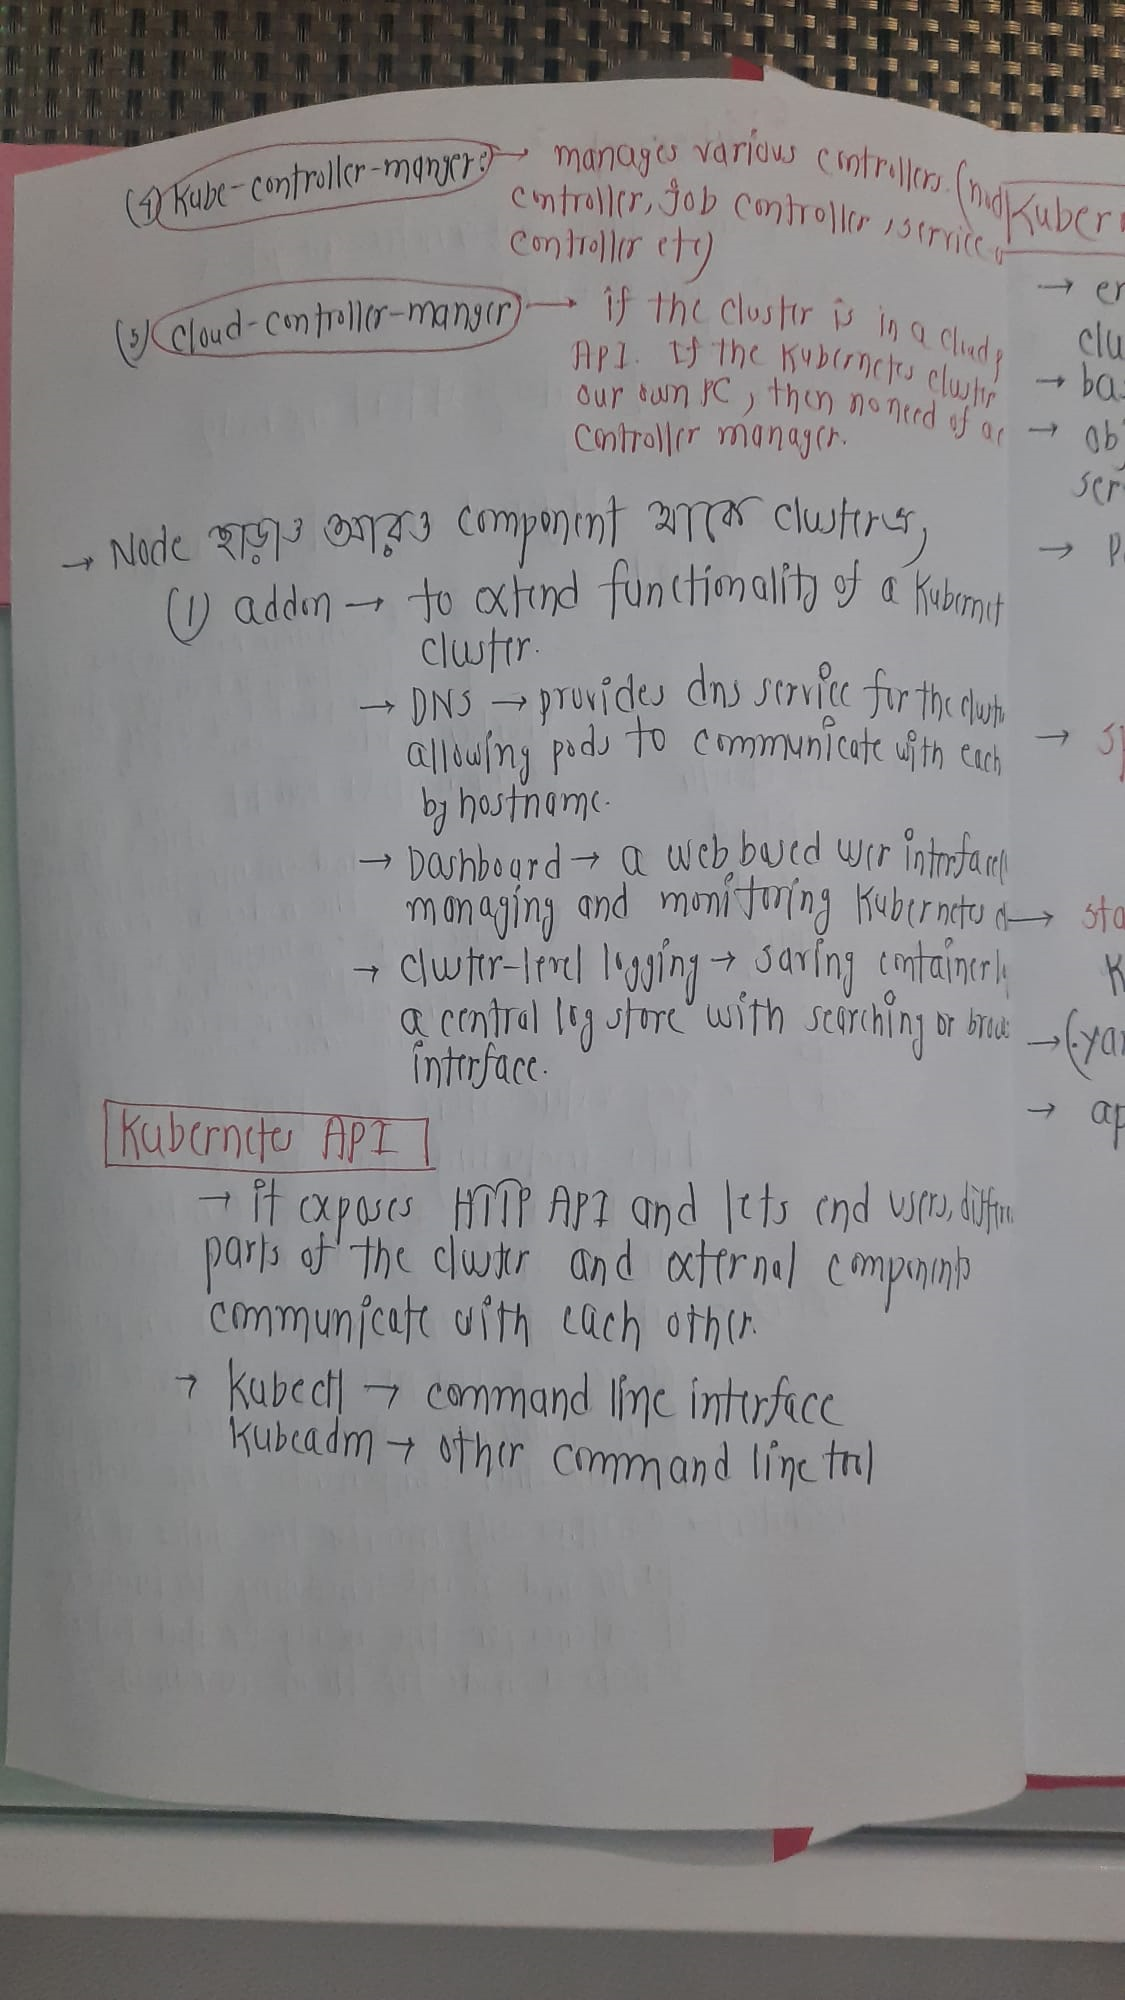 (4) Kube-controller-manger: → manages various controllers. (nod
controller, job controller, service
controller etc)
(5) Cloud-controller-manger → if the cluster is in a cloud p
API. If the Kubernetes cluster
our own PC, then no need of a c
controller manager.
→ Node ছাড়াও আরও component থাকে clusterএ,
(1) addon → to extend functionality of a Kubernet
cluster.
→ DNS → provides dns service for the clust
allowing pods to communicate with each
by hostname.
→ Dashboard → a web based user interface
managing and monitoring Kubernetes c
→ cluster-level logging → saving container l
a central log store with searching or brow
interface.
Kubernetes API
→ it exposes HTTP API and lets end users, differn
parts of the cluster and external components
communicate with each other.
→ Kubectl → command line interface
Kubeadm → other command line tool
Kubern
→ en
clu
→ bas
→ ob
ser
→ P
→ sp
→ sta
K
→ (.yam
→ ap